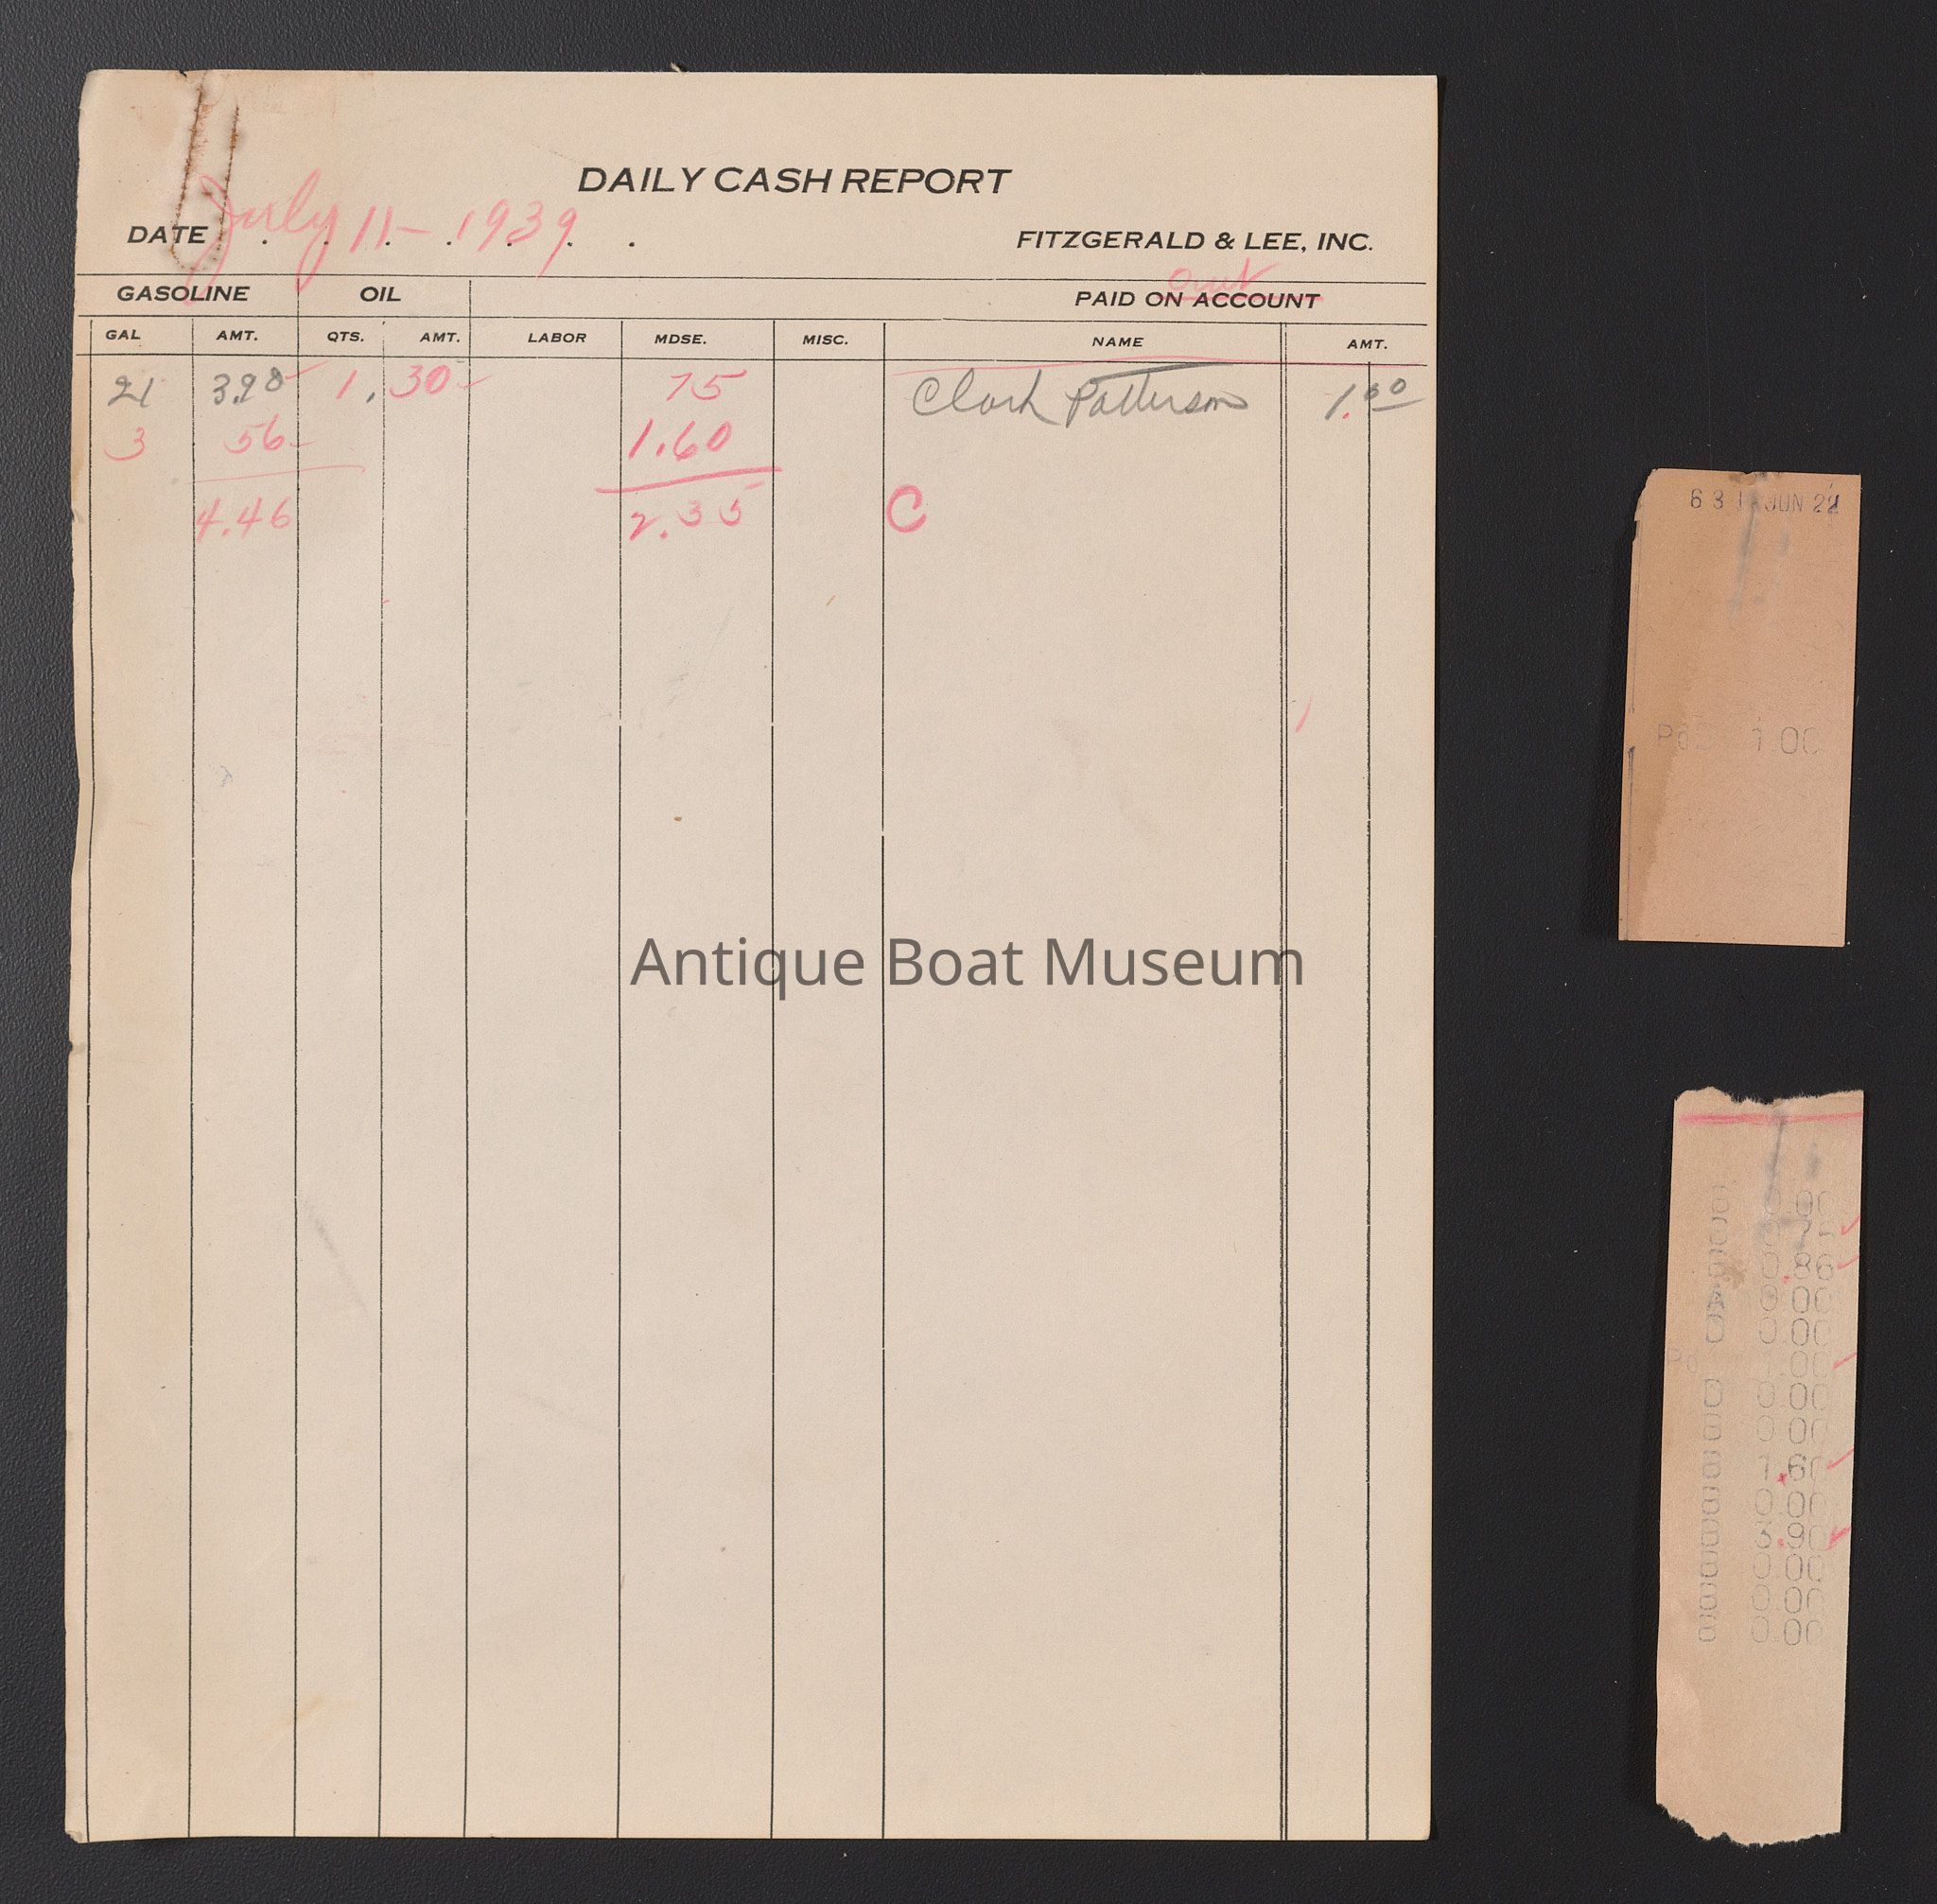 DAILY CASH REPORT
DATE July 11-1939 FITZGERALD & LEE, INC.
out
GASOLINE OIL PAID ON ACCOUNT
GAL AMT. QTS. AMT. LABOR MDSE. MISC. NAME AMT.
21 3.90 1. 30 75 Clark Patterson 1.00
3 56 1.60
4.46 2.35 C
Antique Boat Museum
631 JUN 22
Pd 1.00
0.86
0.00
0.00
Pd 1.00
0.00
0.00
1.60
0.00
3.90
0.00
0.00
0.00